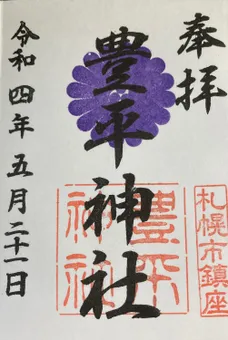 奉拝
札幌市鎮座
豊平神社
豊平神社
令和四年五月二十一日